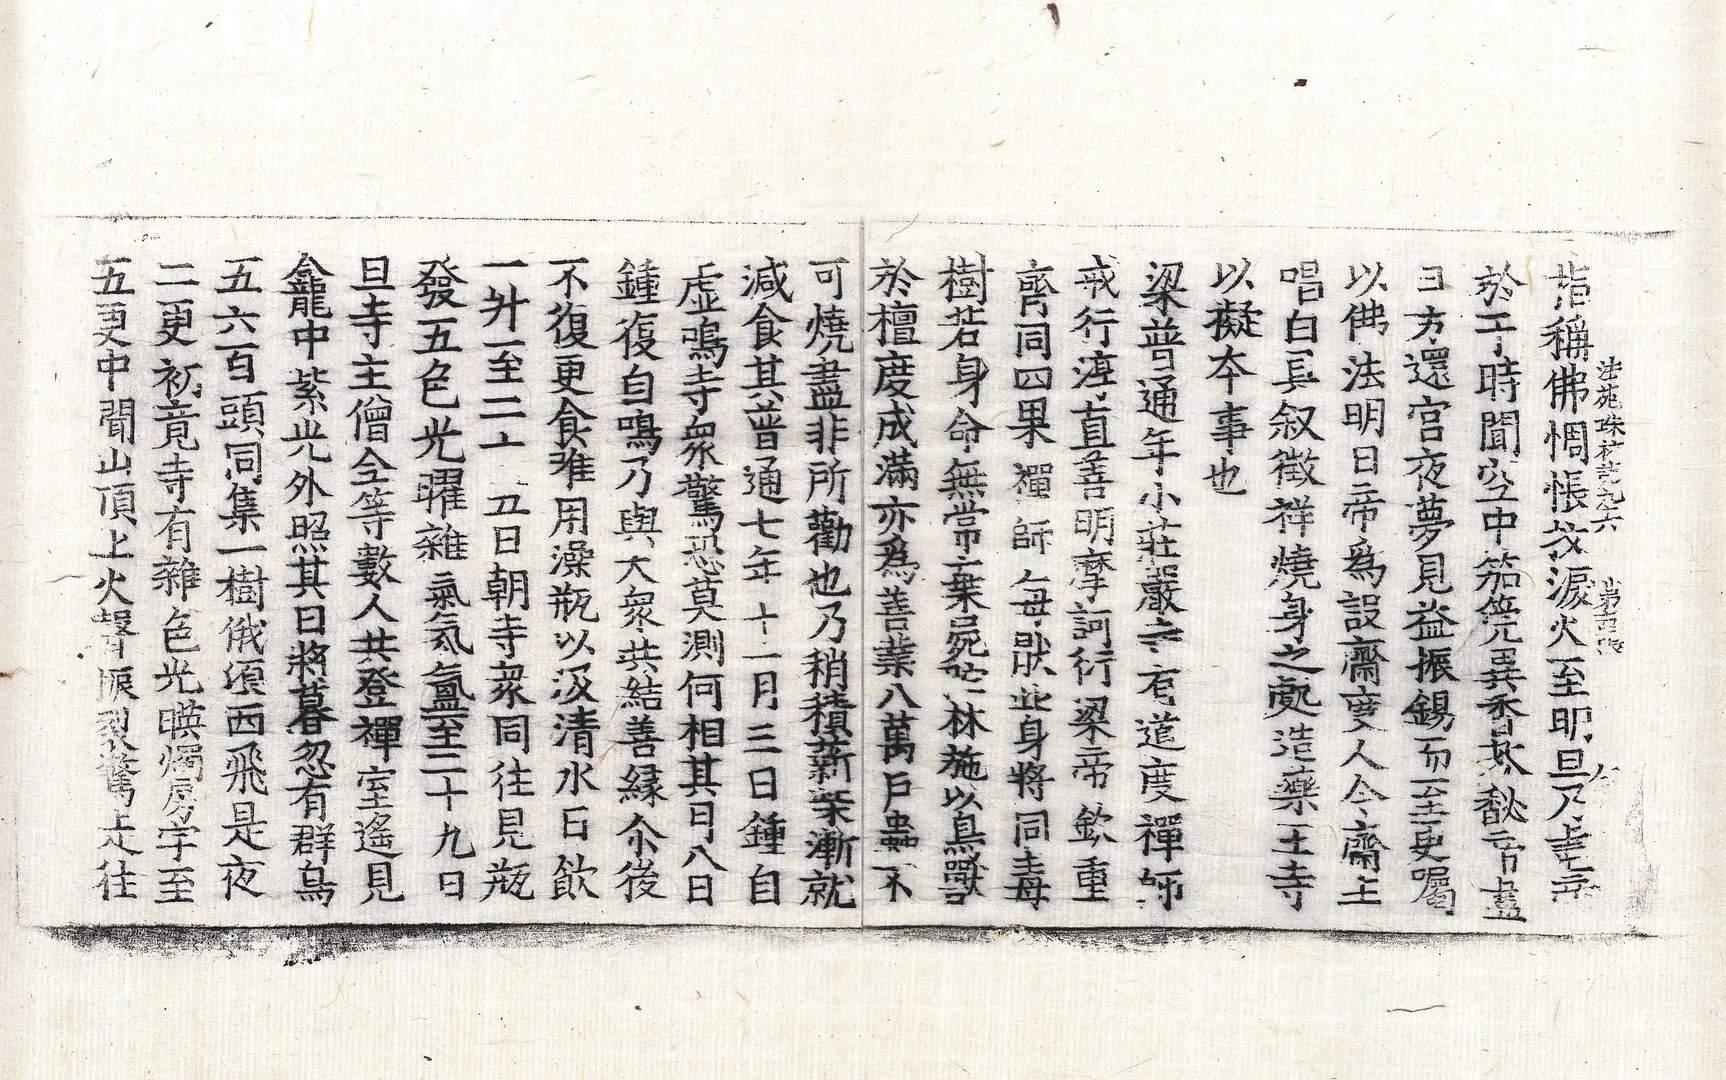 指稱佛惆悵拔淚火至明旦乃盡帝
於于時聞空中笳管異香甚馝帝盡
日方還宮夜夢見益振錫而至更囑
以佛法明日帝為設齋度人令齋主
唱白具叙徵祥燒身之處造藥王寺
以擬本事也
梁普通年小莊嚴寺有道度禪師
戒行淳直善明摩訶衍梁帝欽重
齊同四果禪師每猒此身將同毒
樹若身命無常棄屍陀林施以鳥獸
於檀度成滿亦為善業八萬戶蟲不
可燒盡非所勸也乃稍積薪柴漸就
減食其普通七年十一月三日鍾自
虛鳴寺衆驚恐莫測何相其月八日
鍾復自鳴乃與大衆共結善緣尒後
不復更食唯用澡瓶以汲清水日飲
一升至二十五日朝寺衆同往見瓶
發五色光曜雜氣氛氳至二十九日
旦寺主僧全等數人共登禪室遙見
龕中紫光外照其日將暮忽有群鳥
五六百頭同集一樹俄頃西飛是夜
二更初竟寺有雜色光暎燭房宇至
五更中聞山頂上火聲振裂驚走往
法苑珠林 九十六 第 張